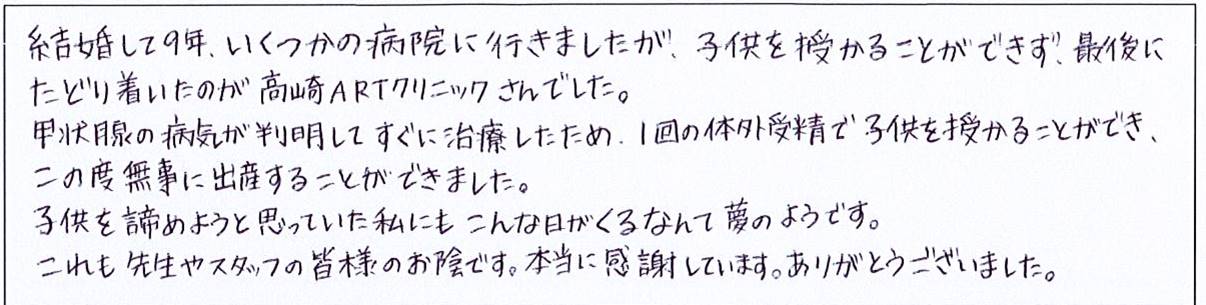 結婚して9年、いくつかの病院に行きましたが、子供を授かることができず、最後に
たどり着いたのが高崎ARTクリニックさんでした。
甲状腺の病気が判明してすぐに治療したため、1回の体外受精で子供を授かることができ、
この度無事に出産することができました。
子供を諦めようと思っていた私にもこんな日がくるなんて夢のようです。
これも先生やスタッフの皆様のお陰です。本当に感謝しています。ありがとうございました。